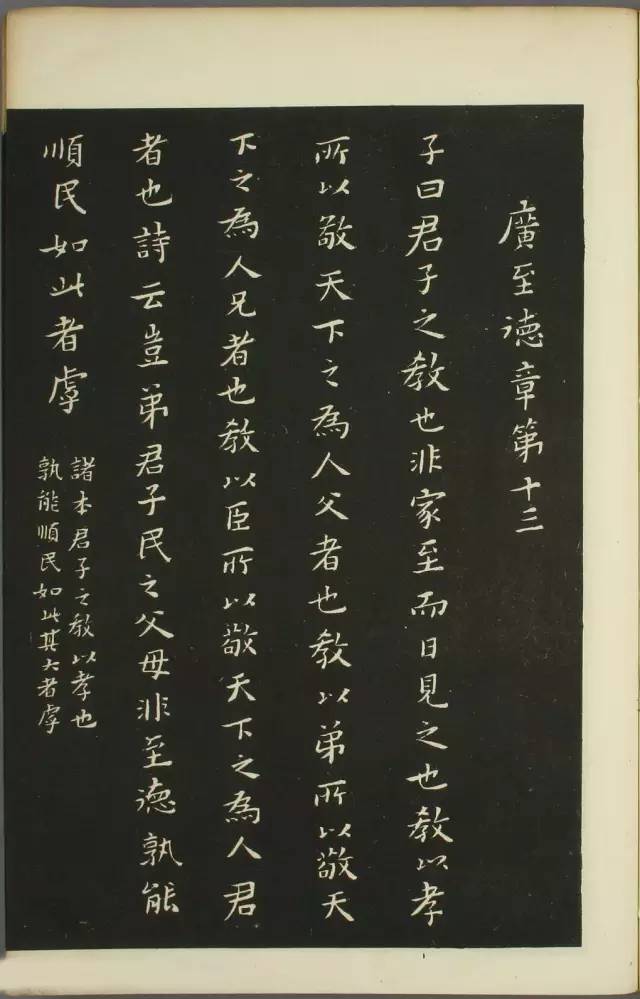 廣至德章第十三
子曰君子之教也非家至而日見之也教以孝
所以敬天下之為人父者也教以弟所以敬天
下之為人兄者也教以臣所以敬天下之為人君
者也詩云豈弟君子民之父母非至德孰能
順民如此者虖
諸本君子之教以孝也
孰能順民如此其大者虖